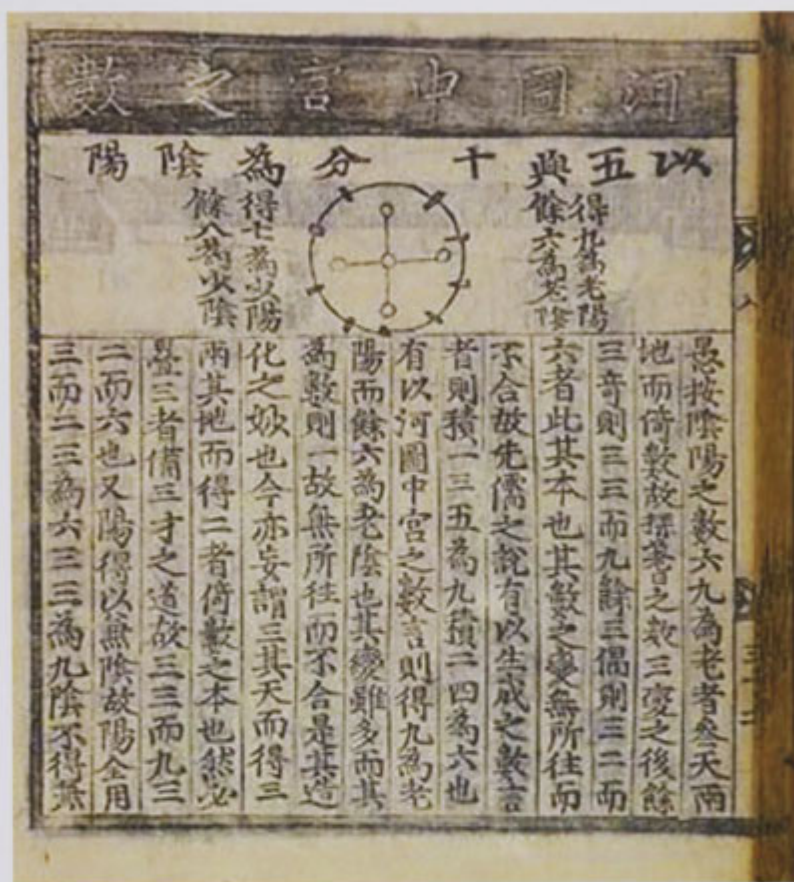 河圖中宮之數
以五與十分為陰陽
得九為老陽
餘六為老陰
得七為少陽
餘八為少陰
愚按陰陽之數六九為老者叄天兩
地而倚數故揲蓍之數三變之後餘
三奇則三三而九餘三偶則三二而
六者此其本也其數之變無所往而
不合故先儒之說有以生成之數言
者則積一三五為九積二四為六也
有以河圖中宮之數言則得九為老
陽而餘六為老陰也其變雖多而其
為數則一故無所往而不合是其造
化之妙也今亦妄謂三其天而得三
兩其地而得二者倚數之本也然必
疊三者備三才之道故三三而九三
二而六也又陽得以兼陰故陽全用
三而二三為六三三為九陰不得兼